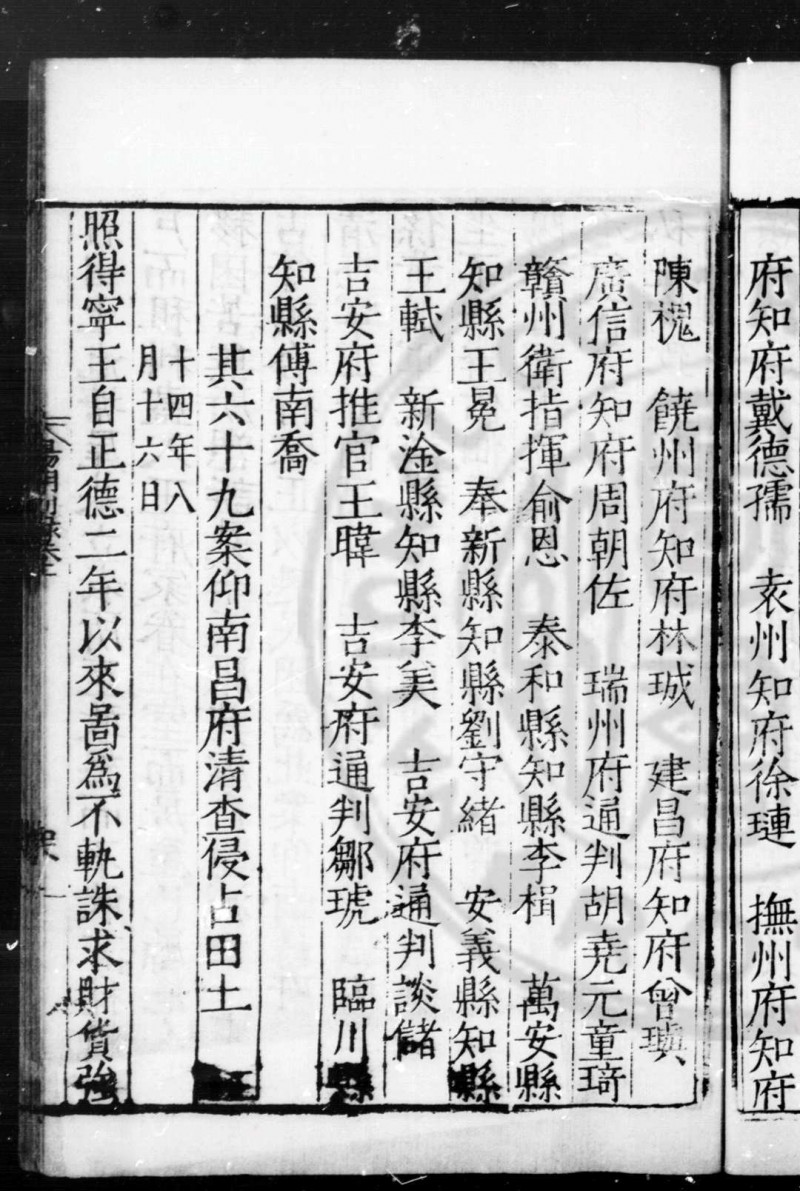 府知府戴德孺　袁州知府徐璉　撫州府知府
陳槐　饒州府知府林珹　建昌府知府曾璵
廣信府知府周朝佐　瑞州府通判胡堯元童琦
贛州衛指揮俞恩　泰和縣知縣李楫　萬安縣
知縣王冕　奉新縣知縣劉守緒　安義縣知縣
王軾　新淦縣知縣李美　吉安府通判談儲
吉安府推官王暐　吉安府通判鄒琥　臨川縣
知縣傅南喬
其六十九案仰南昌府清查侵占田土
十四年八
月十六日
照得寧王自正德二年以來啚爲不軌誅求財貨强